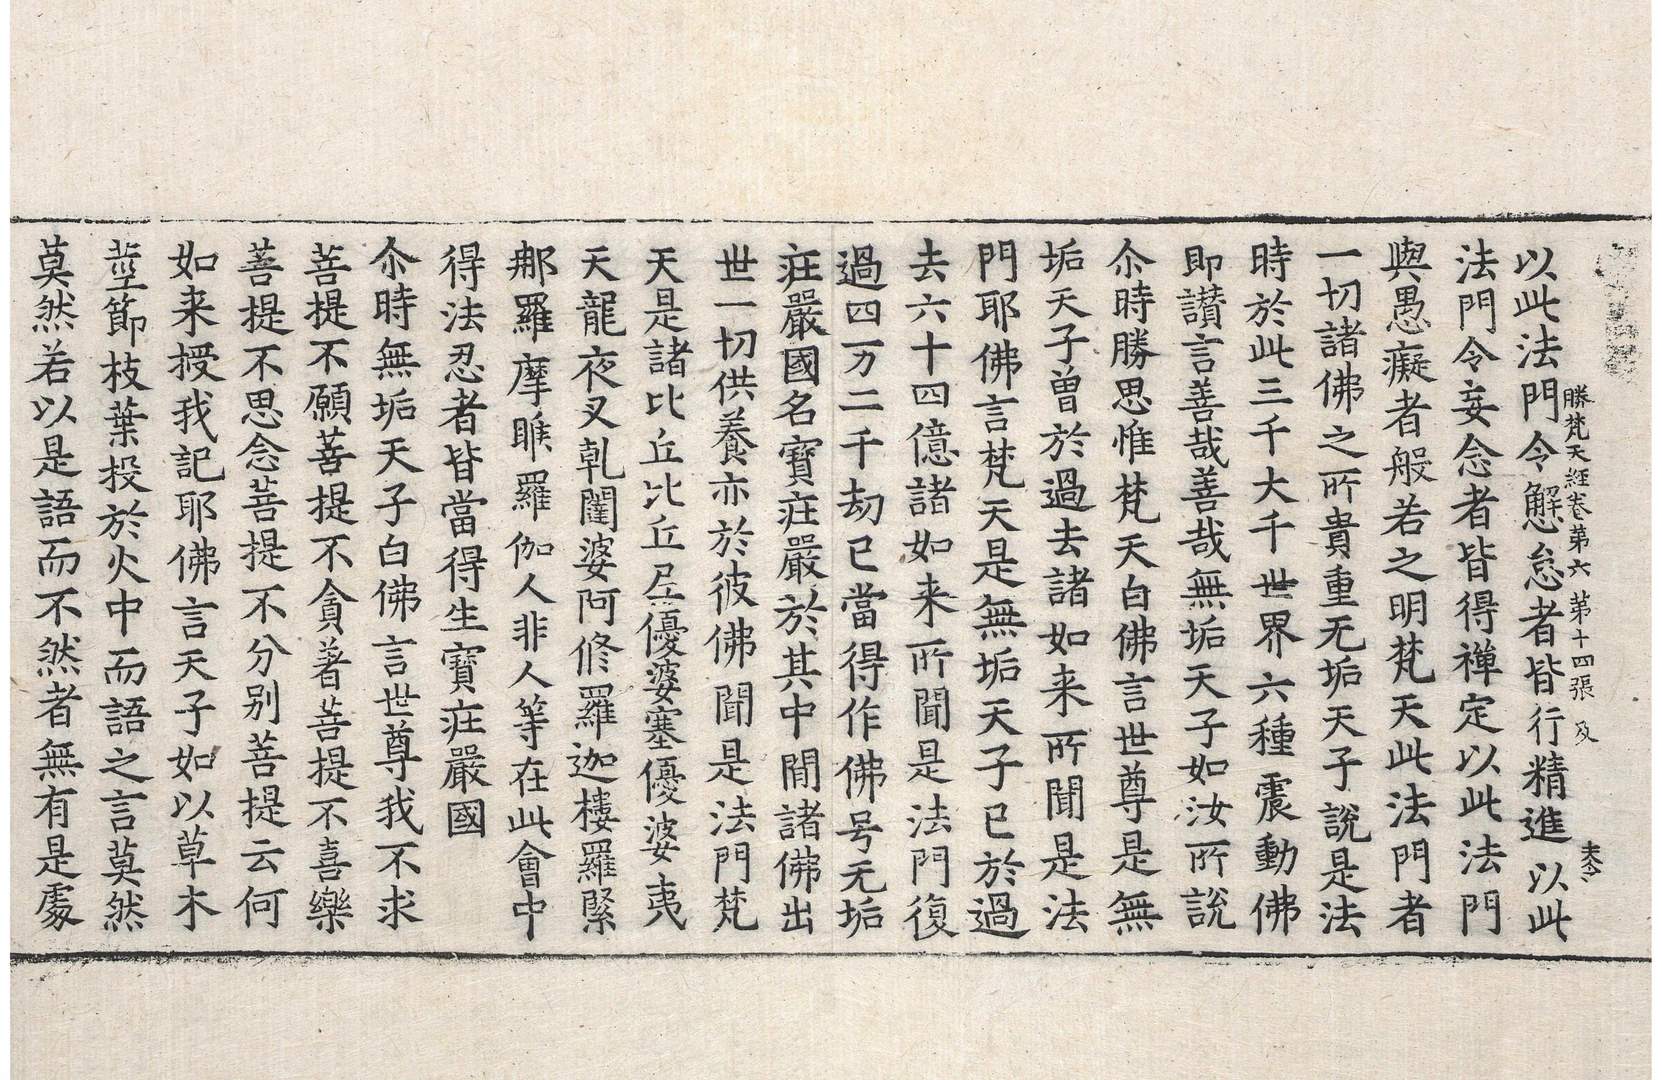 勝梵天経卷第六 第十四張 及
以此法門令懈怠者皆行精進以此
法門令妄念者皆得禅定以此法門
與愚癡者般若之明梵天此法門者
一切諸佛之所貴重无垢天子說是法
時於此三千大千世界六種震動佛
即讃言善哉善哉無垢天子如汝所說
尒時勝思惟梵天白佛言世尊是無
垢天子曽於過去諸如来所聞是法
門耶佛言梵天是無垢天子已於過
去六十四億諸如来所聞是法門復
過四万二千劫已當得作佛号无垢
莊嚴國名寶莊嚴於其中閒諸佛出
世一切供養亦於彼佛聞是法門梵
天是諸比丘比丘尼優婆塞優婆夷
天龍夜叉乹闥婆阿修羅迦樓羅緊
那羅摩睺羅伽人非人等在此會中
得法忍者皆當得生寶莊嚴國
尒時無垢天子白佛言世尊我不求
菩提不願菩提不貪著菩提不喜樂
菩提不思念菩提不分别菩提云何
如来授我記耶佛言天子如以草木
莖節枝葉投於火中而語之言莫然
莫然若以是語而不然者無有是處